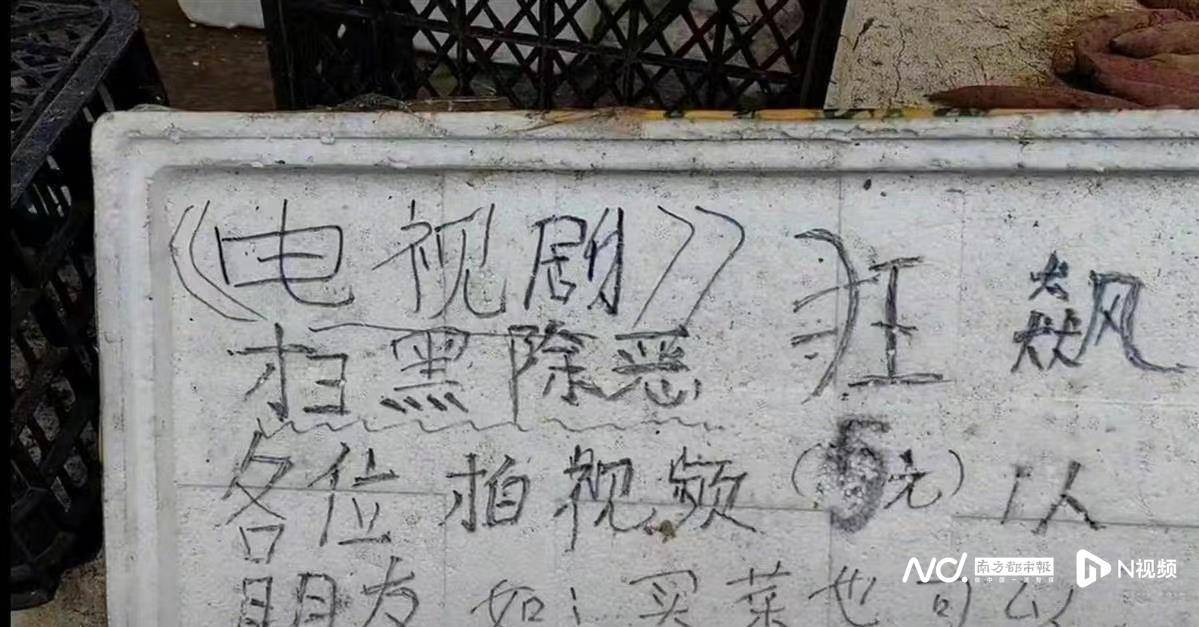 《电视剧》 狂飙
扫黑除恶
各位拍视频(5元)1人
朋友如:买菜也可以
N视频
南方都市报